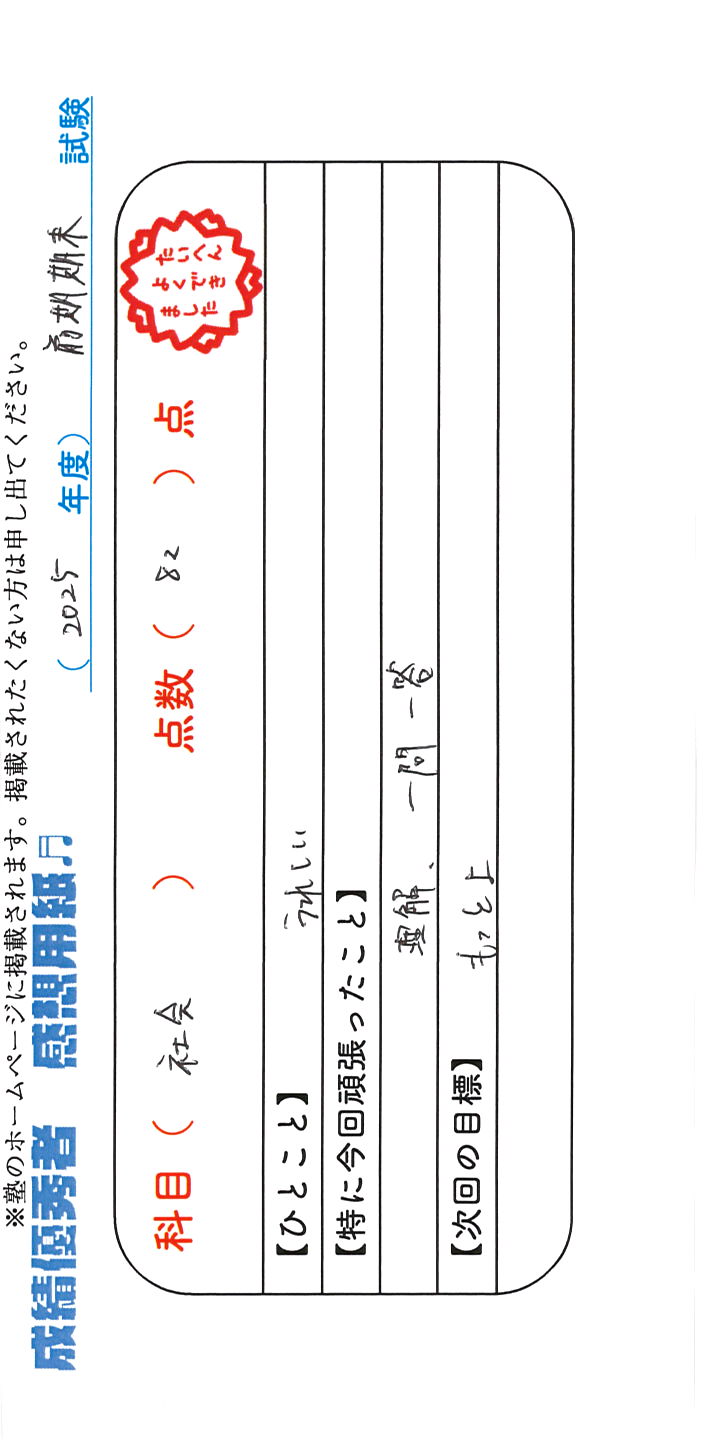 ※塾のホームページに掲載されます。掲載されたくない方は申し出てください。
成績優秀者 感想用紙♫ （ 2025 年度） 前期期末 試験
科目（ 社会 ） 点数（ 82 ）点
たいへん
よくでき
ました
【ひとこと】 うれしい
【特に今回頑張ったこと】
理解、一問一答
【次回の目標】 もっと上